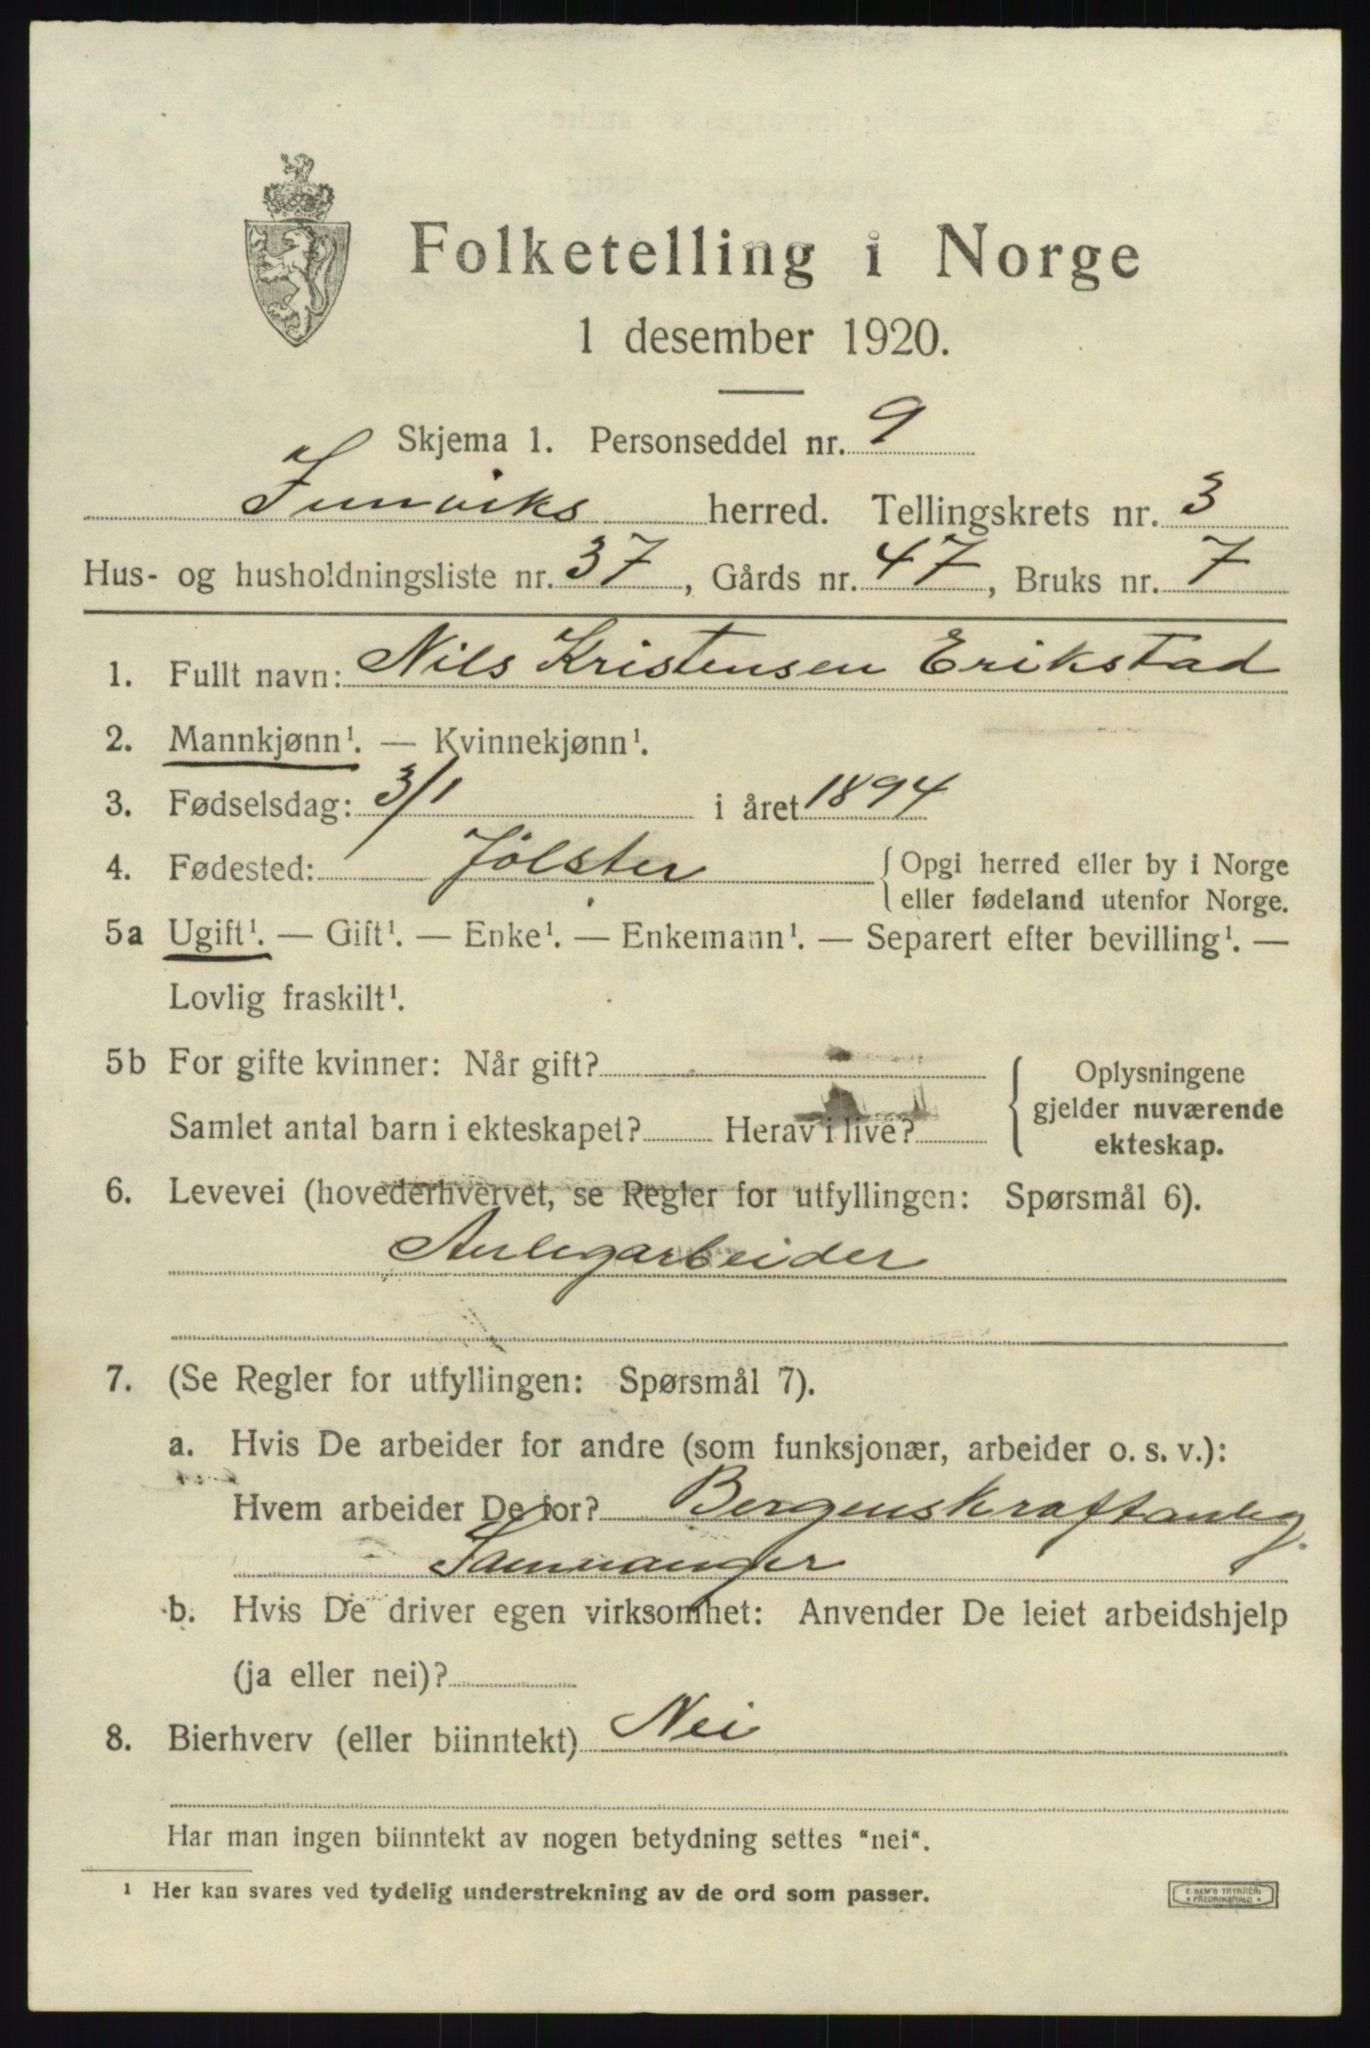 Folketelling i Norge
1 desember 1920.
Skjema 1. Personseddel nr. 9
herred. Tellingskrets nr. 3
Hus- og husholdningsliste nr. 37, Gårds nr. 47, Bruks nr. 7
1. Fullt navn: Nils Kristensen Erikstad
2. Mannkjønn¹. — Kvinnekjønn¹.
3. Fødselsdag: 3/1 i året 1894
4. Fødested: Jølster { Opgi herred eller by i Norge
eller fødeland utenfor Norge.
5a Ugift¹. — Gift¹. — Enke¹. — Enkemann¹. — Separert efter bevilling¹. —
Lovlig fraskilt¹.
5b For gifte kvinner: Når gift?
Samlet antal barn i ekteskapet? Herav i live?
Oplysningene
gjelder nuværende
ekteskap.
6. Levevei (hovederhvervet, se Regler for utfyllingen: Spørsmål 6).
Anlegarbeider
7. (Se Regler for utfyllingen: Spørsmål 7).
a. Hvis De arbeider for andre (som funksjonær, arbeider o. s. v.):
Hvem arbeider De for? Bergenskraftanleg.
Samnanger
b. Hvis De driver egen virksomhet: Anvender De leiet arbeidshjelp
(ja eller nei)?
8. Bierhverv (eller biinntekt) Nei
Har man ingen biinntekt av nogen betydning settes "nei".
¹ Her kan svares ved tydelig understrekning av de ord som passer.